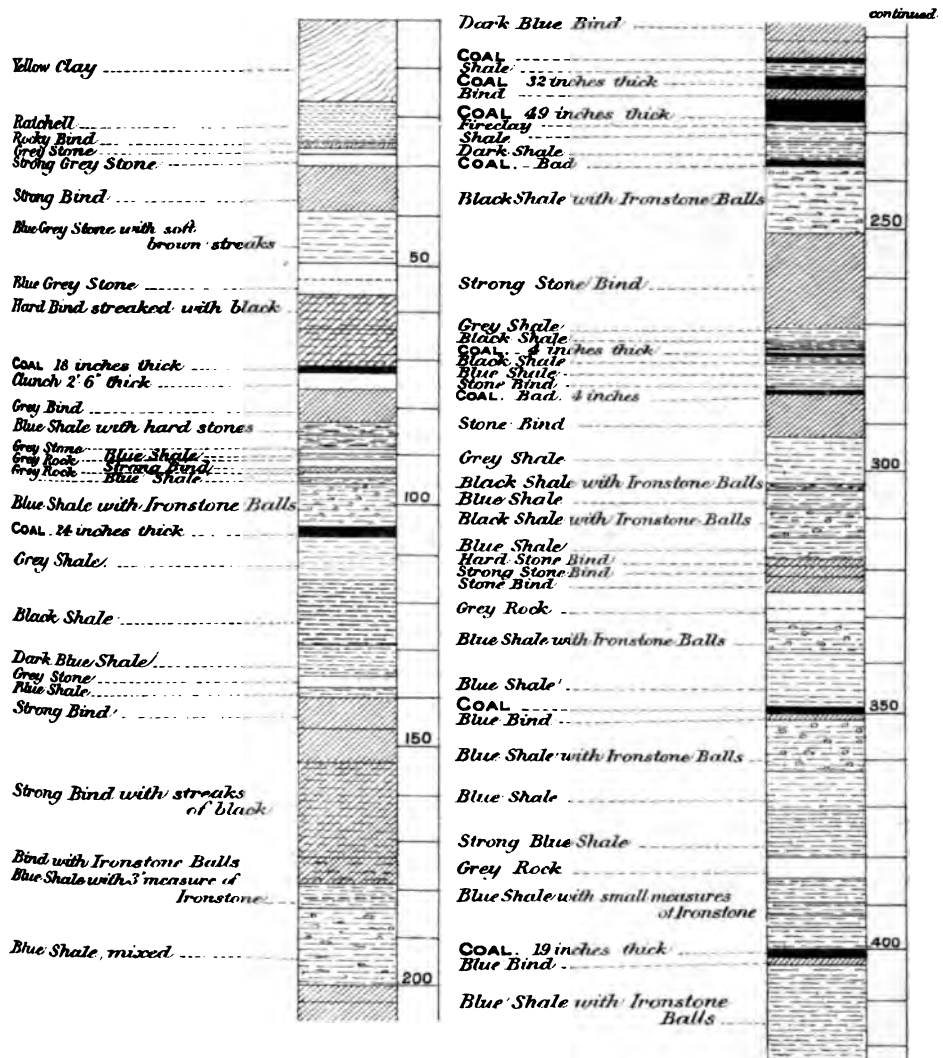 Yellow Clay
Ratchell
Rocky Bind
Grey Stone
Strong Grey Stone
Strong Bind
Blue Grey Stone with soft
brown streaks
50
Blue Grey Stone
Hard Bind streaked with black
COAL 18 inches thick
Clunch 2' 6" thick
Grey Bind
Blue Shale with hard stones
Grey Stone
Blue Shale
Grey Rock
Strong Bind
Grey Rock
Blue Shale
100
Blue Shale with Ironstone Balls
COAL. 24 inches thick
Grey Shale
Black Shale
Dark Blue Shale
Grey Stone
Blue Shale
Strong Bind
150
Strong Bind with streaks
of black
Bind with Ironstone Balls
Blue Shale with 3" measure of
Ironstone
Blue Shale, mixed
200
continued
Dark Blue Bind
COAL
Shale
COAL 32 inches thick
Bind
COAL 49 inches thick
Fireclay
Shale
Dark Shale
COAL. Bad
Black Shale with Ironstone Balls
250
Strong Stone Bind
Grey Shale
Black Shale
COAL. 4 inches thick
Black Shale
Blue Shale
Stone Bind
COAL. Bad. 4 inches
Stone Bind
Grey Shale
300
Black Shale with Ironstone Balls
Blue Shale
Black Shale with Ironstone Balls
Blue Shale
Hard Stone Bind
Strong Stone Bind
Stone Bind
Grey Rock
Blue Shale with Ironstone Balls
Blue Shale
COAL
350
Blue Bind
Blue Shale with Ironstone Balls
Blue Shale
Strong Blue Shale
Grey Rock
Blue Shale with small measures
of Ironstone
COAL. 19 inches thick
400
Blue Bind
Blue Shale with Ironstone
Balls